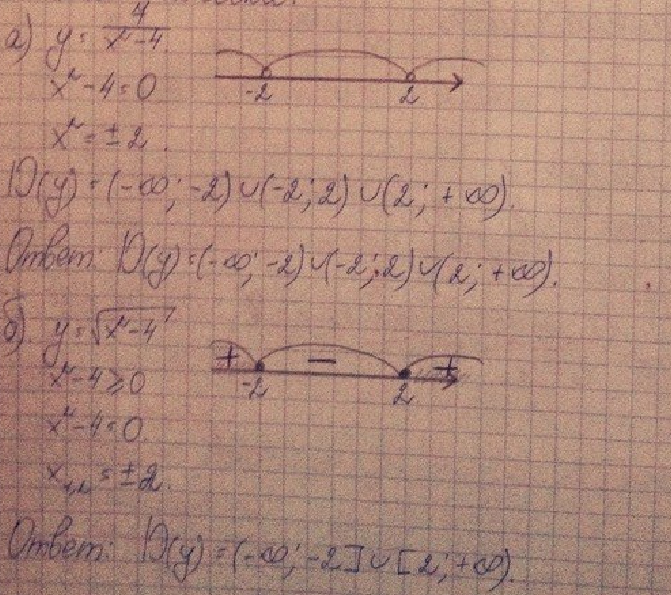 а) y = 4/(x²-4)
x²-4=0
-2 2
x²=±2.
D(y)=(-∞;-2)∪(-2;2)∪(2;+∞).
Ответ: D(y)=(-∞;-2)∪(-2;2)∪(2;+∞).
б) y=√(x²-4)
+ − +
-2 2
x²-4≥0
x²-4=0.
x₁,₂=±2.
Ответ: D(y)=(-∞;-2]∪[2;+∞).